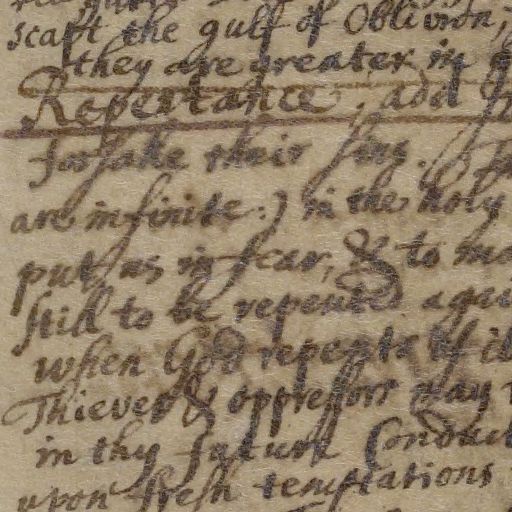 scapt the gulf of Oblivion,
they are greater in
Repentance, add
forsake their sins.
are infinite:) in the holy
put us in fear, & to
still to be repented agai
when God repents of
Thieves & oppressors may
in thy future Conduct
upon fresh temptations